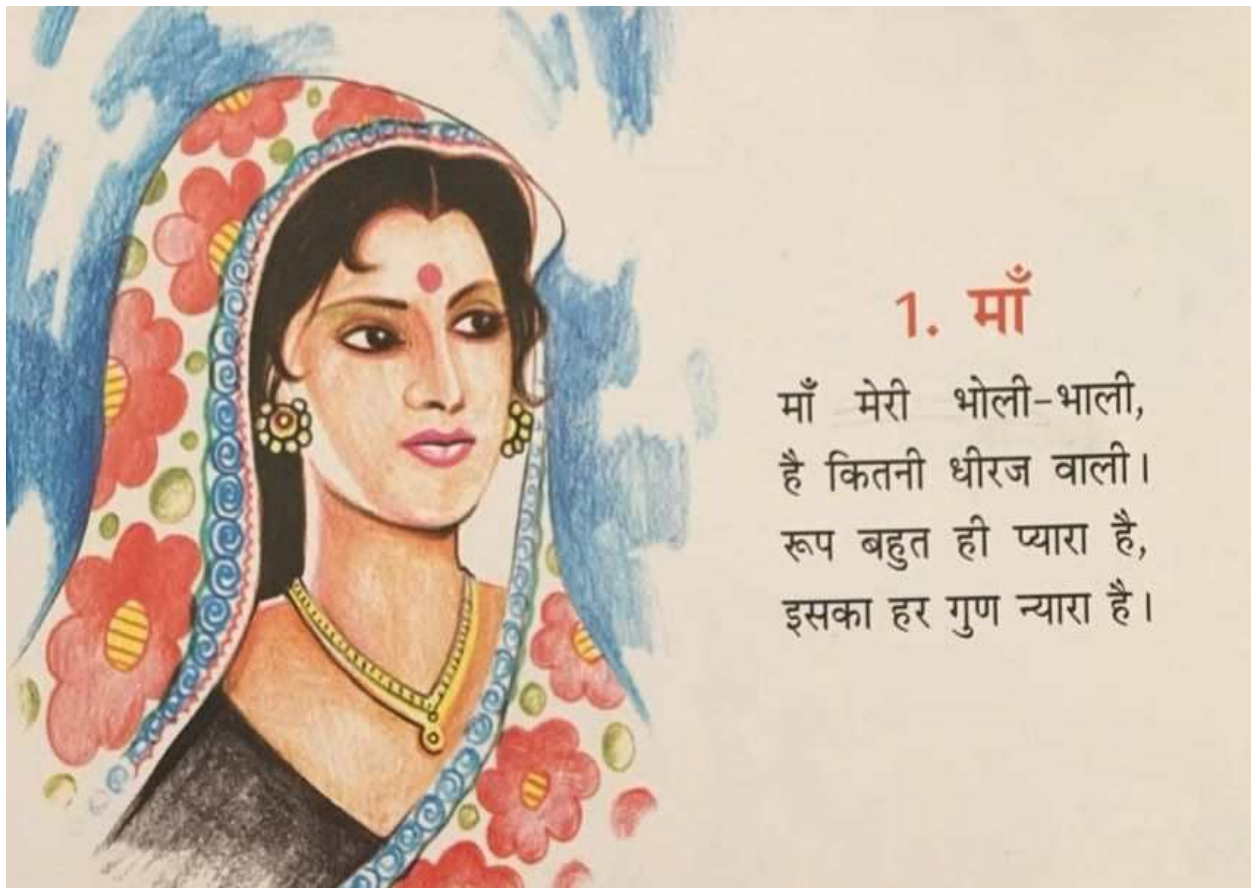 1. माँ
माँ मेरी भोली-भाली,
है कितनी धीरज वाली।
रूप बहुत ही प्यारा है,
इसका हर गुण न्यारा है।